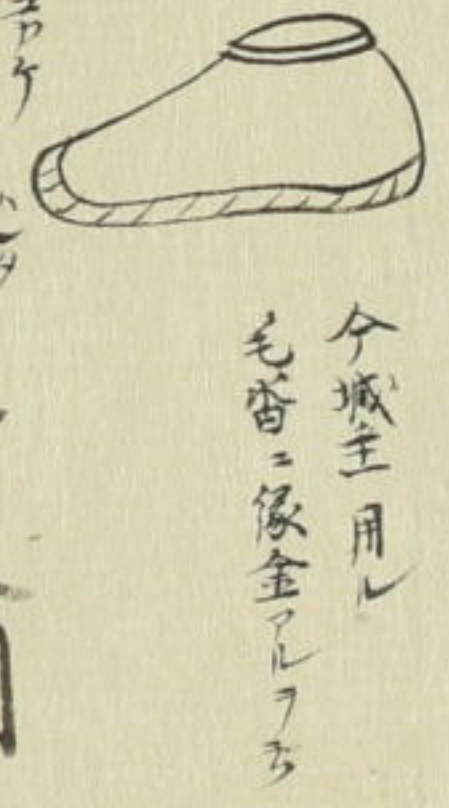 今城主用ル
毛沓ニ縁金アルヲ云